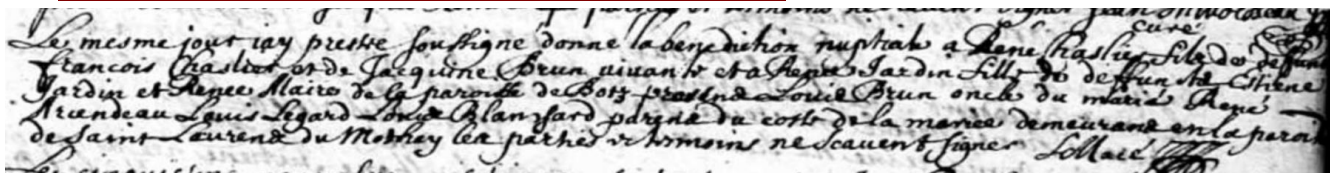 Le mesme jour jay prestre soussigne donne la benediction nuptiale a René Chaslier fils de deffunt
François Chaslier et de Jacquine Brun vivante et a Renee Jardin fille de deffunts Estiene
Jardin et Renee Alaire de la paroisse de Botz presens Louis Brun oncle du marié René
Arcendeau Louis Legard Louis Blanfard parens du costé de la mariee demeurans en la paroisse
de Saint Laurens du Mothay les parties et temoins ne scavent signer
curé